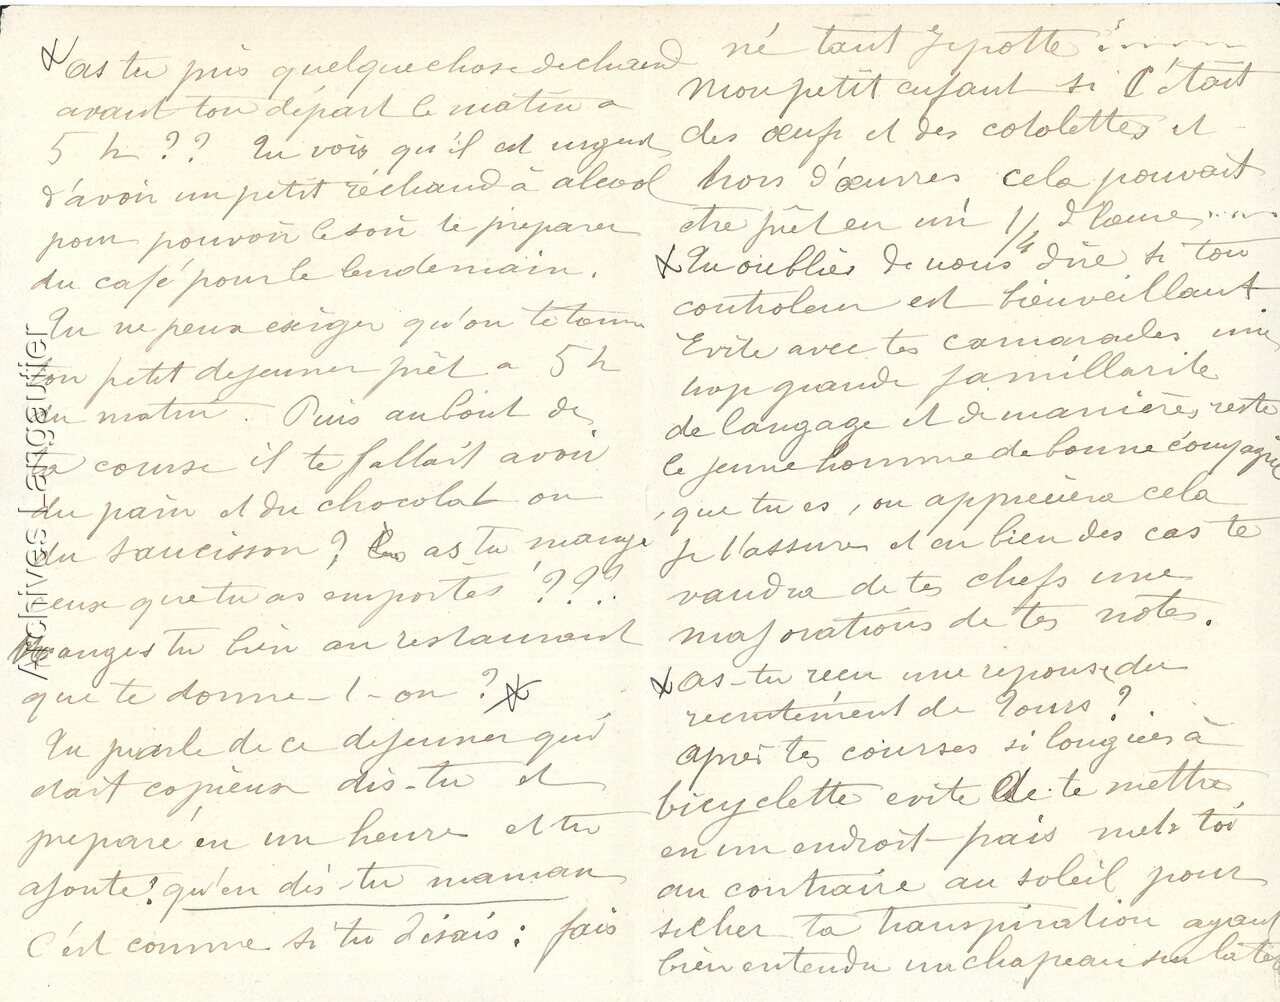 as tu pris quelque chose de chaud
avant ton départ le matin a
5 h ?? Tu vois qu'il est urgent
d'avoir un petit réchaud à alcool
pour pouvoir le soir te preparer
du café pour le lendemain.
Tu ne peux exiger qu'on te
ton petit dejeuner prêt a 5 h
du matin. Puis au bout de
ta course il te fallait avoir
du pain et du chocolat ou
du saucisson ? as tu mangé
ceux que tu as emportés ???
Manges tu bien au restaurant
que te donne-t-on ?
Tu parle de ce dejeuner qui
etait copieux dis-tu et
preparé en un heure et tu
ajoute ? qu'en dis-tu maman
C'est comme si tu disais : fais
né tant
Mon petit enfant si c'était
des œufs et des cotolettes et
hors d'œuvres cela pouvait
etre prêt en un 1/4 d'heure
Tu oublies de nous dire si ton
controleur est bienveillant
Evite avec tes camarades une
trop grande famillarite
de langage et de manières, reste
le jeune homme de bonne compagnie
que tu es, on appreciera cela
je t'assure et en bien des cas te
vaudra de tes chefs une
majorations de tes notes.
as-tu recu une reponse du
recrutement de Tours ?
apres tes courses si longues à
bicyclette evite de te mettre
en un endroit frais mets toi
au contraire au soleil pour
secher ta transpiration ayant
bien entendu un chapeau sur la tete
Archives Langeuttier